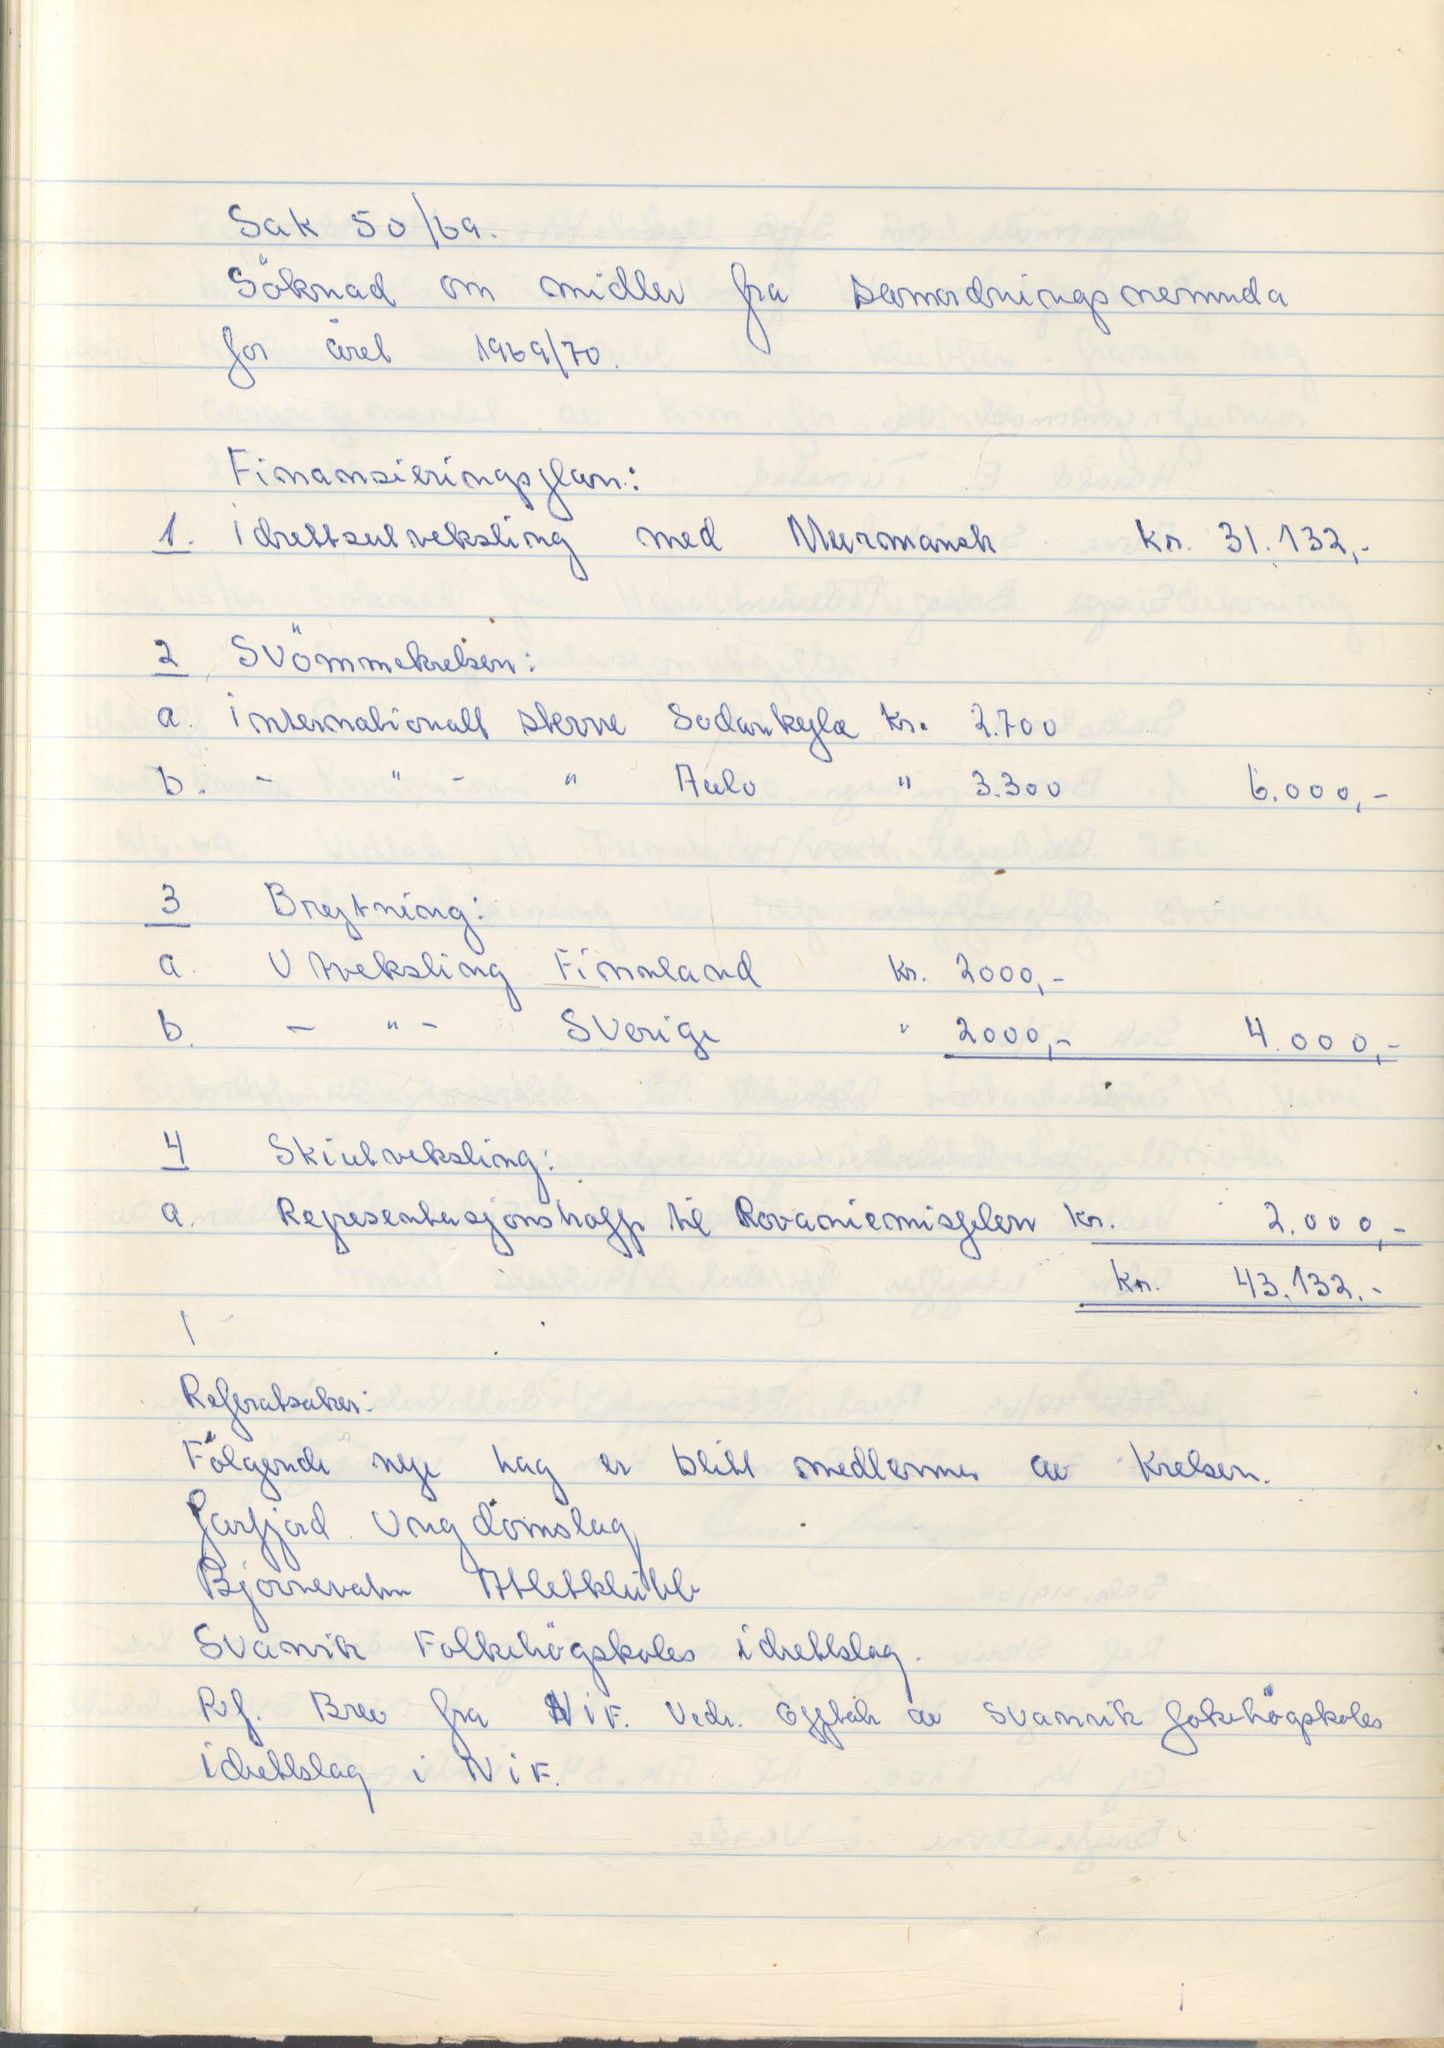 Sak 50/69.
Söknad om midler fra samordningsnemnda
for året 1969/70.
Finansieringsplan:
1. idrettsutveksling med Murmansk kr. 31.132,-
2 Svömmekretsen:
a. internationalt stevne Sodankylæ kr. 2.700
b. - " - " " 3.300 6.000,-
3 Brytning:
a. Utveksling Finnland kr. 2000,-
b. - " - Sverige " 2000,- 4.000,-
4 Skiutveksling:
a. Representasjonstropp til Rovaniemispelen kr. 2.000,-
kr. 43.132.-
Referatsaker:
Fölgende nye lag er blitt medlemmer av kretsen.
Jarfjord Ungdomslag
Bjørnevatn Atletklubb
Svanvik Folkehögskoles idrettslag.
Ref. Brev fra NiF. Vedr. Opptak av Svanvik fokehögskoles
idrettslag i NiF.